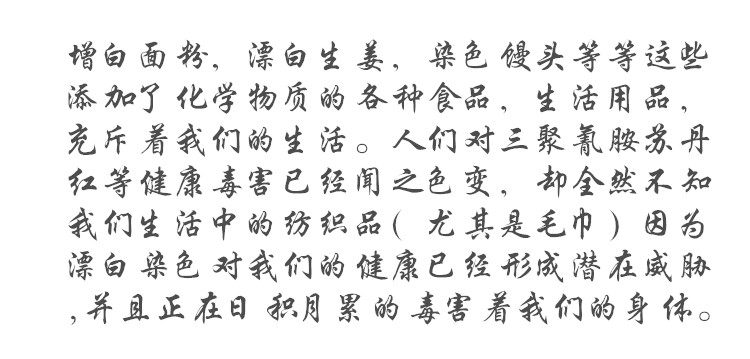 增白面粉，漂白生姜，染色馒头等等这些
添加了化学物质的各种食品，生活用品，
充斥着我们的生活。人们对三聚氰胺苏丹
红等健康毒害已经闻之色变，却全然不知
我们生活中的纺织品(尤其是毛巾)因为
漂白染色对我们的健康已经形成潜在威胁
,并且正在日积月累的毒害着我们的身体。